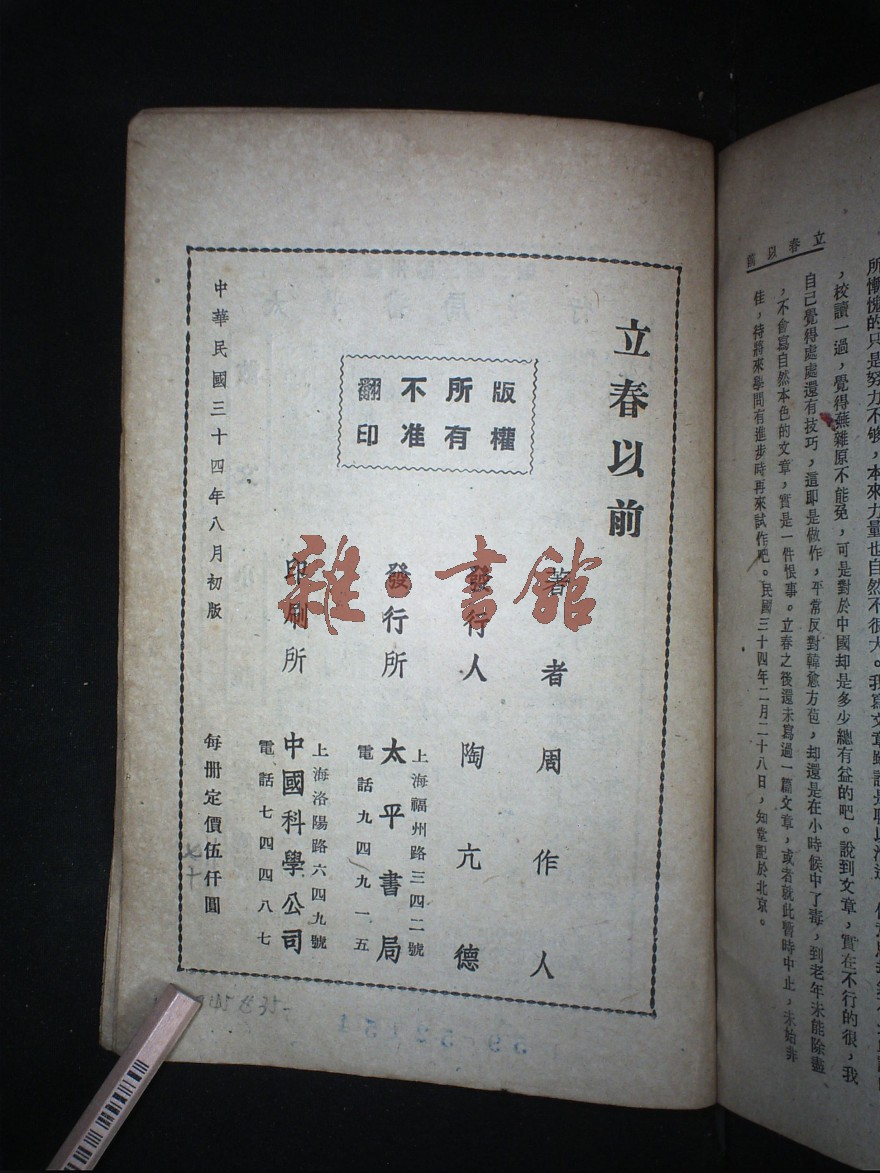 立春以前
版權
所有
不准
翻印
著者 周作人
發行人 陶亢德
發行所 太平書局
上海福州路三四二號
電話九四九一五
印刷所 中國科學公司
上海洛陽路六四九號
電話七四四八七
中華民國三十四年八月初版
每册定價伍仟圓
雜·書館
七十
59 5215 1
立春以前
所慚愧的只是努力不够，本來力量也自然不很大。我寫文章
，校讀一過，覺得蕪雜原不能免，可是對於中國却是多少總有益的吧。說到文章，實在不行的很，我
自己覺得處處還有技巧，這即是做作，平常反對韓愈方苞，却還是在小時候中了毒，到老年未能除盡
，不會寫自然本色的文章，實是一件恨事。立春之後還未寫過一篇文章，或者就此暫時中止，未始非
佳，待將來學問有進步時再來試作吧。民國三十四年二月二十八日，知堂記於北京。